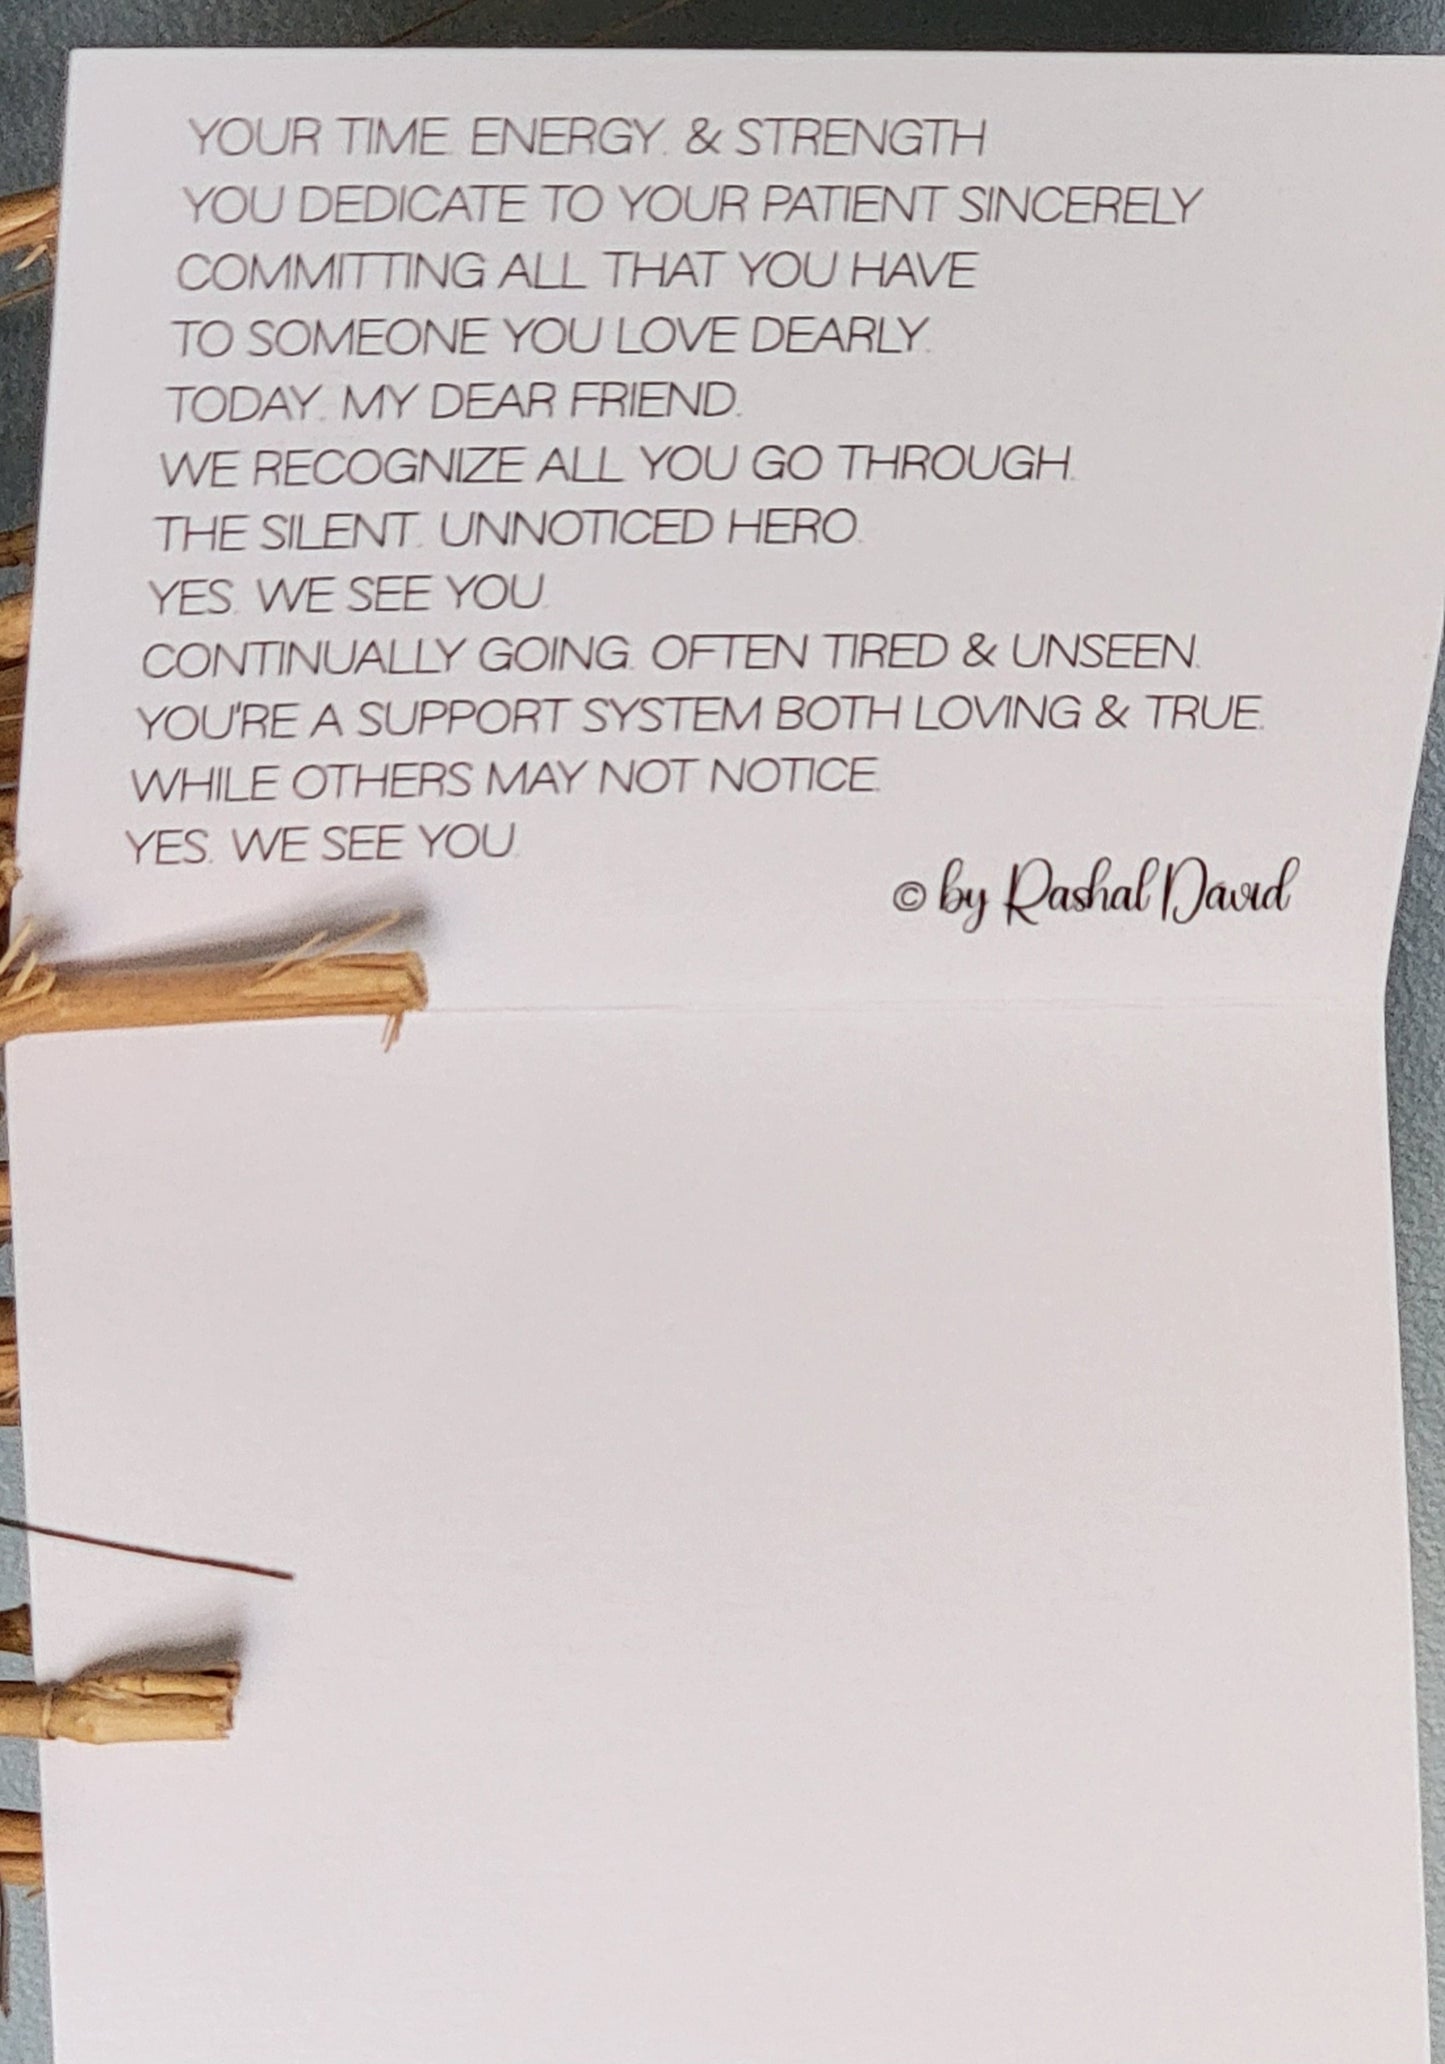 YOUR TIME, ENERGY, & STRENGTH
YOU DEDICATE TO YOUR PATIENT SINCERELY
COMMITTING ALL THAT YOU HAVE
TO SOMEONE YOU LOVE DEARLY.
TODAY, MY DEAR FRIEND,
WE RECOGNIZE ALL YOU GO THROUGH.
THE SILENT, UNNOTICED HERO.
YES, WE SEE YOU.
CONTINUALLY GOING, OFTEN TIRED & UNSEEN,
YOU'RE A SUPPORT SYSTEM BOTH LOVING & TRUE.
WHILE OTHERS MAY NOT NOTICE,
YES, WE SEE YOU.
© by Rashal David